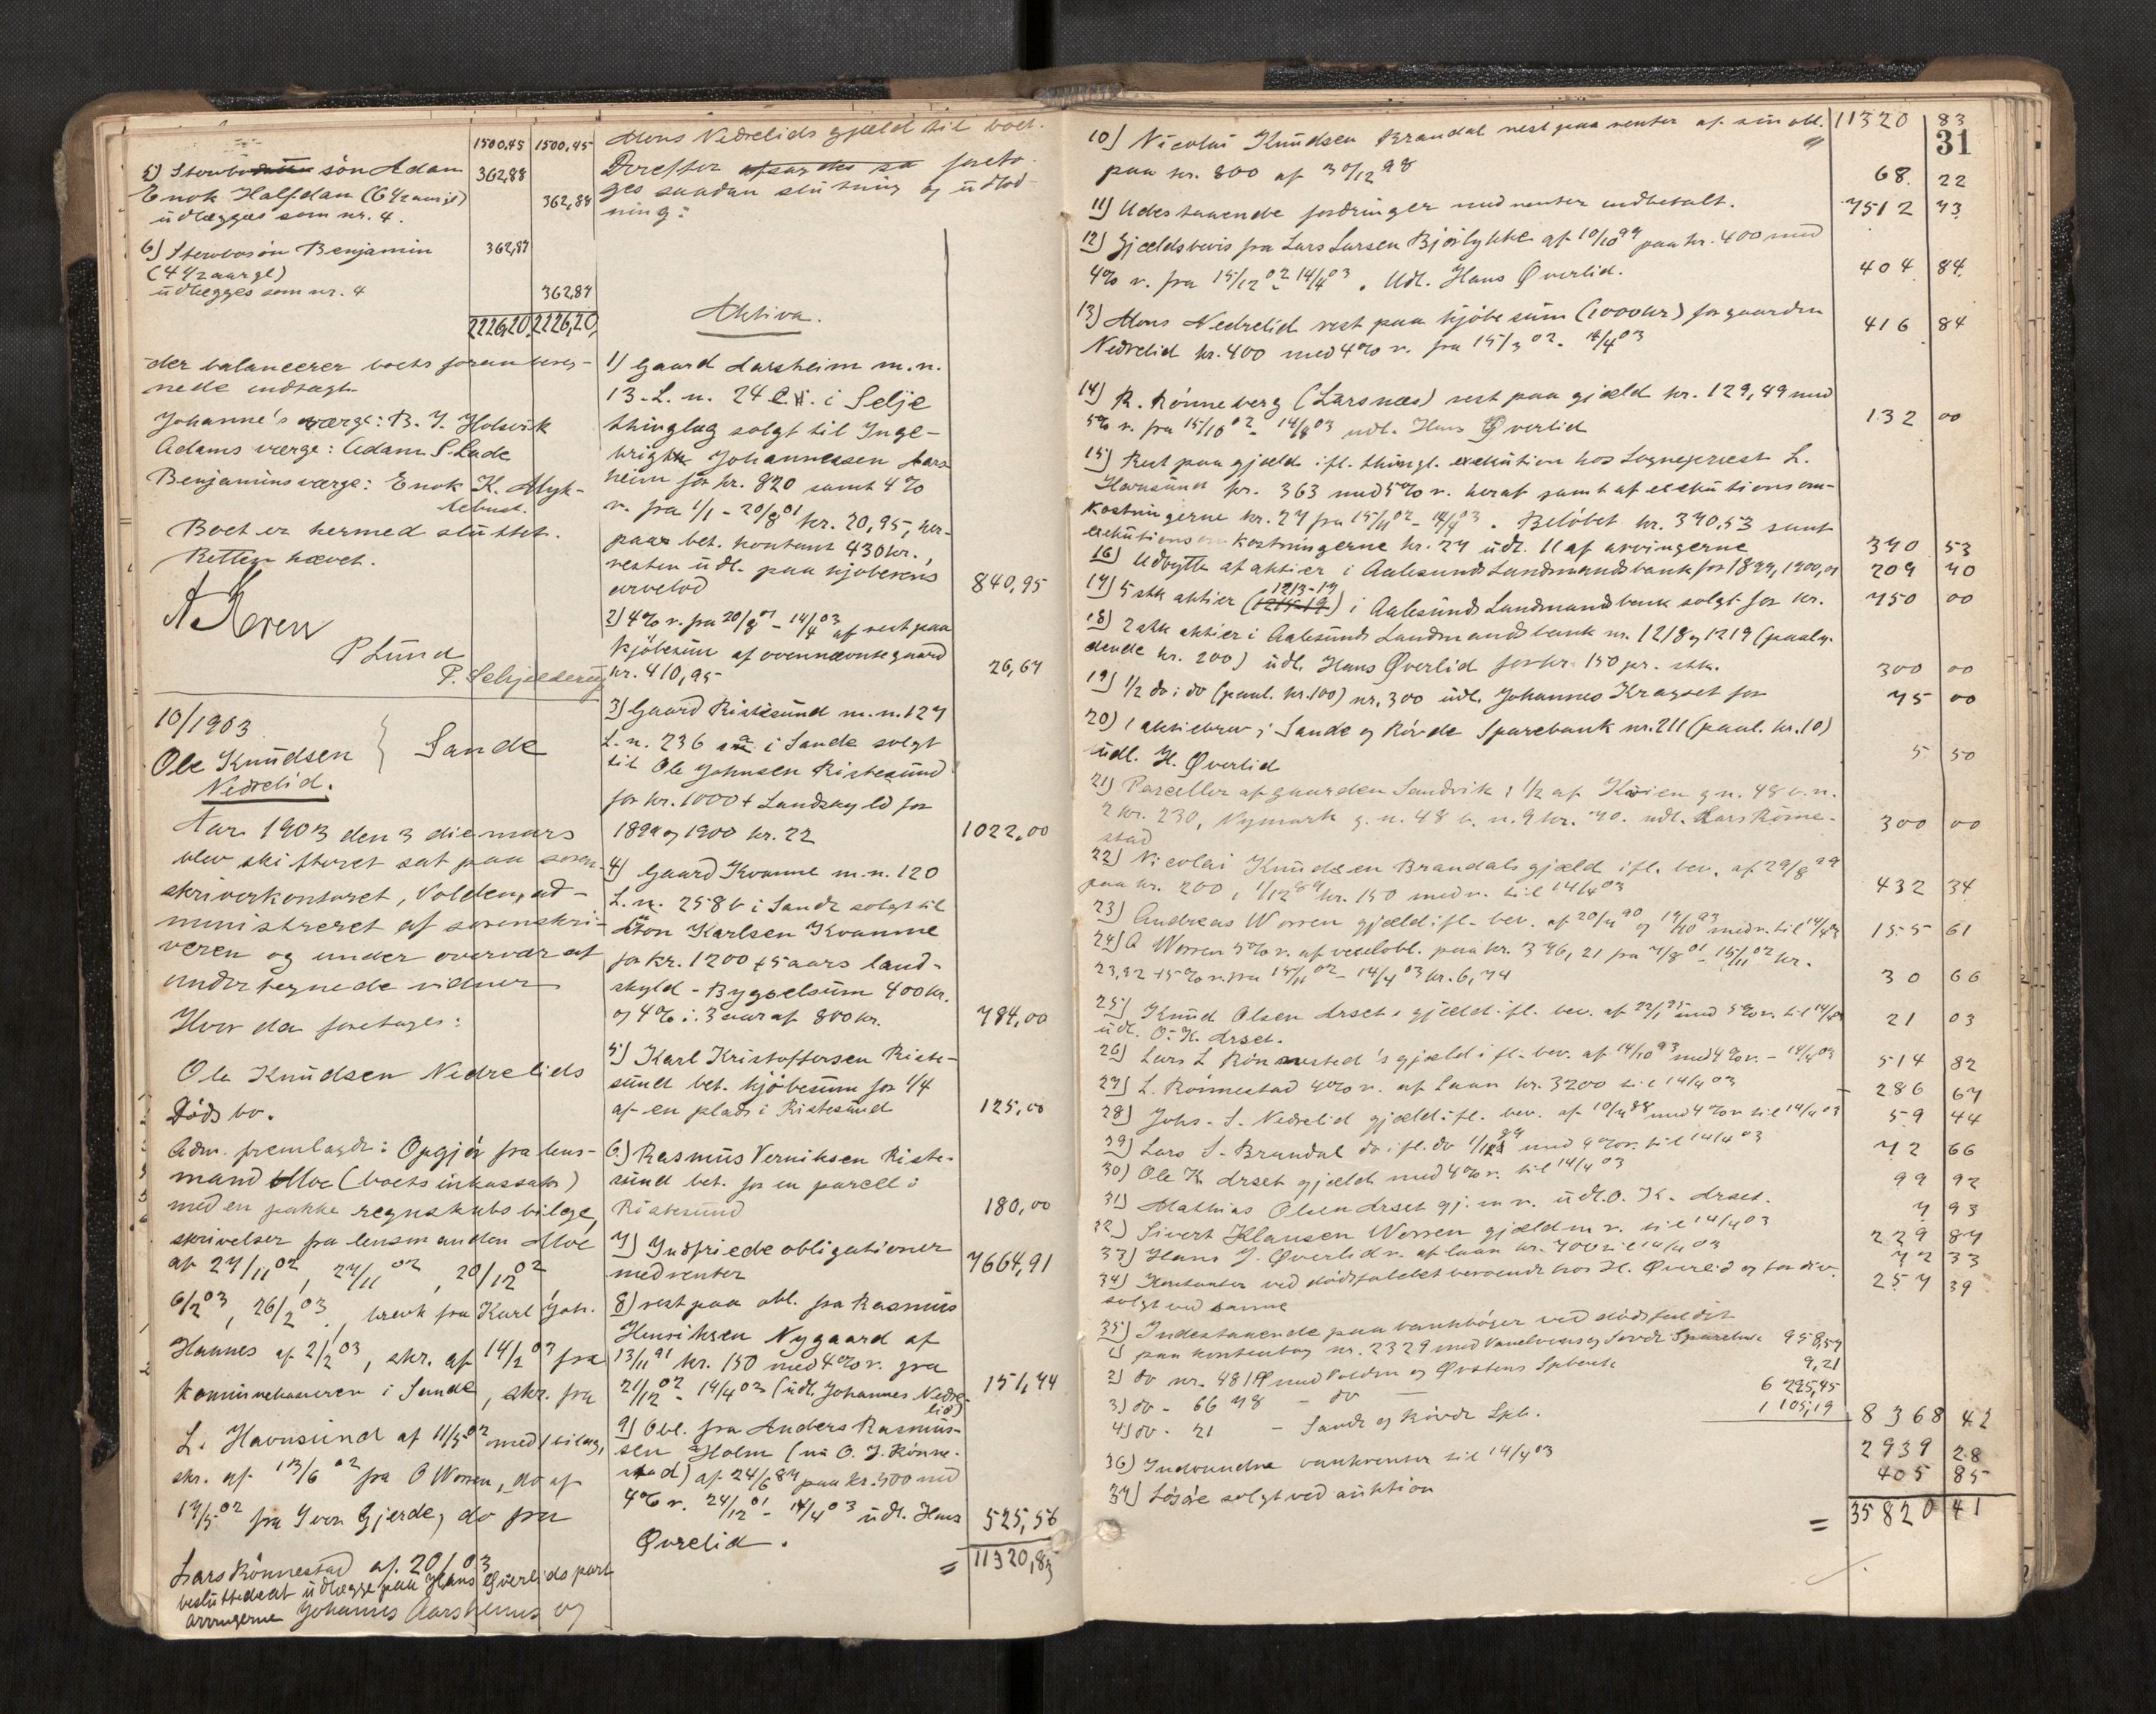 1500,45 1500,45
5) Stervbosøn Adam 362,88
Enok Halfdan (6 1/2 aarige) 362,88
udlægges som nr. 4.
6) Stervbosøn Benjamin 362,87
(4 1/2 aargl)
udlægges som nr. 4 362,87
2226,20 2226,20
der balancerer boets foran bereg-
nede indtægt.
Johanne's værge: B. J. Holsvik
Adams værge: Adam S. Lade
Benjamins værge: Enok K. Myk-
lebust.
Boet er hermed sluttet.
Retten hævet.
P Lund
P. Schjelderup
10/1903
Ole Knudsen } Sande
Nedrelid.
Aar 1903 den 3 die mars
blev skifteret sat paa soren-
skriverkontoret, Volden, ad-
ministreret af sorenskri-
veren og under overvær af
undertegnede vidner
Hvor da foretoges:
Ole Knudsen Nedrelids
Dødsbo.
Adm. fremlagde: Opgjør fra lens-
mand Moe (boets inkassator)
med en pakke regnskabsbilage,
skrivelser fra lensmanden Moe
af 27/11 02, 27/11 02, 20/12 02
6/2 03, 26/2 03, brevk fra Karl Joh.
Hannes af 2/2 03, skr. af 14/2 03 fra
kommunekasseren i Sande, skr. fra
L. Havnsund af 11/5 02 med 1 bilag,
skr. af 13/6 02 fra O Worren, do af
17/5 02 fra Iver Gjerde, do fra
Lars Rønnestad af 20/1 03
besluttedes at udlægge paa Hans Øverlids part
arvingerne Johannes Aarsheims og
Mons Nedrelids gjæld til boet.
Derefter foreto-
ges saadan slutning og udlod-
ning:
Aktiva.
1) Gaard Aarsheim m.n.
13 L. n. 24 i Selje
thinglag solgt til Inge-
brigt Johannessen Aars-
heim for kr. 820 samt 4%
r. fra 1/1 - 20/8 01 kr. 20,95, her-
paa bet. kontant 430 kr.,
resten udl. paa kjøberens
arvelod 840,95
2) 4% r. fra 20/8 01 - 14/4 03 af rest paa
kjøbesum af ovennævnte gaard
kr. 410,95 26,67
3) Gaard Ristesund m.n. 127
L.n. 236 a i Sande solgt
til Ole Johnsen Ristesund
for kr. 1000 + Landskyld for
1899 og 1900 kr. 22 1022,00
4) Gaard Kvamme m.n. 120
L.n. 258 b i Sande solgt til
Karlsen Kvamme
for kr. 1200 + 5 aars land-
skyld - Bygselsum 400 kr.
og 4% i 3 aar af 800 kr. 784,00
5) Karl Kristoffersen Riste-
sund bet. kjøbesum for 1/4
af en plads i Ristesund 125,00
6) Rasmus Verniksen Riste-
sund bet. for en parcel i
Ristesund 180,00
7) Indfriede obligationer
med renter 7664,91
8) rest paa obl. fra Rasmus
Henriksen Nygaard af
13/11 91 kr. 150 med 4% r. fra
21/12 02 - 14/4 03 (udl. Johannes Nedre-
lid) 151,74
9) Obl. fra Anders Rasmus-
sen Holm (nu O. J. Rønne-
stad) af 24/6 87 paa kr. 500 med
4% r. 24/12 01 - 14/4 03 udl. Hans
Øvrelid. 525,56
= 11320,83
31
10) Nicolai Knudsen Brandal rest paa renter af sin obl. 11320 83
paa kr. 800 af 30/12 98 68 22
11) Udestaaende fordringer med renter indbetalt. 7512 73
12) Gjældsbevis fra Lars Larsen Bjørlykke af 10/10 99 paa kr. 400 med
4% r. fra 15/12 02 - 14/4 03. Udl. Hans Øverlid. 404 84
13) Mons Nedrelid rest paa kjøbesum (1000 kr) for gaarden
Nedrelid kr. 400 med 4% r. fra 15/3 02 - 14/4 03 416 84
14) R. Rønneberg (Larsnæs) rest paa gjæld kr. 129,49 med
5% r. fra 15/10 02 - 14/4 03 udl. Hans Øverlid 132 00
15) Rest paa gjæld ifl. thingl. exekution hos Sogneprest L.
Havnsund kr. 363 med 5% r. heraf samt af exekutionsom-
kostningerne kr. 27 fra 15/11 02 - 14/4 03. Beløbet kr. 370,53 samt
exekutionsomkostningerne kr. 27 udl. 11 af arvingerne 370 53
16) Udbytte af aktier i Aalesunds Landmandsbank for 1899, 1900, 01 209 40
17) 5 stk aktier (1213-17) i Aalesunds Landmandsbank solgt for kr. 750 00
18) 2 stk aktier i Aalesunds Landmandsbank nr. 1218 og 1219 (paaly-
dende kr. 200) udl. Hans Øverlid for kr. 150 pr. stk. 300 00
19) 1/2 do i do (paal. kr. 100) nr. 300 udl. Johannes Kragset for 75 00
20) 1 aktiebrev i Sande og Rovde Sparebank nr. 211 (paal. kr. 10)
udl. H. Øverlid 5 50
21) Parceller af gaarden Sandvik: 1/2 af Kvien g.n. 48 b.n.
2 kr. 230, Nymark g.n. 48 b.n. 9 kr. 70. udl. Lars Rønne-
stad 300 00
22) Nicolai Knudsen Brandals gjæld ifl. bev. af 29/8 99
paa kr. 200, 1/12 89 kr. 150 med r. til 14/4 03 432 34
23) Andreas Worren gjæld ifl. bev. af 20/4 90 og 14/10 93 med r. til 14/4 03 155 61
24) A Worren 5% r. af vexelobl. paa kr. 376,21 fra 7/8 01 - 15/11 02 kr.
23,92 + 5% r. fra 15/11 02 - 14/4 03 kr. 6,74 30 66
25) Knud Olsen Årset's gjæld ifl. bev. af 22/1 95 med 5% r. til 14/4 03 21 03
udl. O. K. Årset.
26) Lars L Rønnestad's gjæld ifl. bev. af 14/10 93 med 4% r. - 14/4 03 514 82
27) L. Rønnestad 4% r. af laan kr. 3200 til 14/4 03 286 67
28) Johs. S. Nedrelid gjæld ifl. bev. af 10/4 88 med 4% r til 14/4 03 59 44
29) Lars S. Brandal do ifl. do med 4% r. til 14/4 03 72 66
30) Ole K. Årset gjæld med 4% r. til 14/4 03 99 92
31) Mathias Olsen Årset gj. m r. udl. O. K. Årset. 7 93
32) Sivert Klausen Worren gjæld m r. til 14/4 03 229 87
33) Hans J. Øverlid r. af laan kr. 700 til 14/4 03 72 33
34) Kontanter ved dødsfaldet beroende hos H. Øverlid og for div. 257 39
solgt ved samme
35) Indestaaende paa bankbøger ved dødsfaldet
1) paa kontrabog nr. 2329 med Vanelvens og Sovde Sparebank 958,57
2) do nr. 4819 med Volden og Ørstens Spbank 9,21
3) do - 6678 - do 6295,45
4) do - 21 - Sande og Rovde Spb. 1105,19 8368 42
36) Indvundne bankrenter til 14/4 03 2939 28
37) Løsøre solgt ved auktion 405 85
= 35820 41